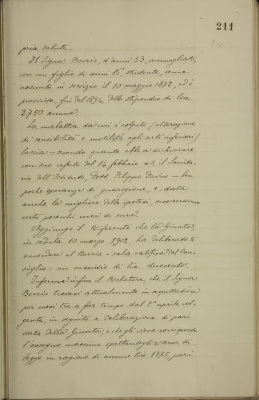 211
pria salute.
Il Signor Burzio, d'anni 53, ammogliato,
con un figlio di anni 15, studente, venne
assunto in servizio il 10 maggio 1872, ed è
provvisto, fin dal 1894, dello stipendio di lire
2750 annue.
La malattia da cui è colpito (alterazione
di sensibilità e motilità agli arti inferiori)
lascia - secondo quanto ebbe a dichiarare
con suo referto del 14 febbraio u.s. il Sanita-
rio dell'Istituto, Dott. Filippo
poche speranze di guarigione, e, data
anche la migliore delle ipotesi, occorreranno
certo parecchi mesi di cura.
Aggiunge il Riferente che la Giunta,
in seduta 10 marzo 1902, ha deliberato di
accordare al Burzio - salvo ratifica del Con-
siglio - un sussidio di lire duecento.
Informa infine il Relatore, che il Signor
Burzio trovasi attualmente in aspettativa
per mesi tre a far tempo dal 1° aprile vol-
gente, in seguito a deliberazione di pari
data della Giunta, e che gli viene corrisposto
l'assegno massimo spettantegli a' sensi di
legge in ragione di annue lire 1375, pari